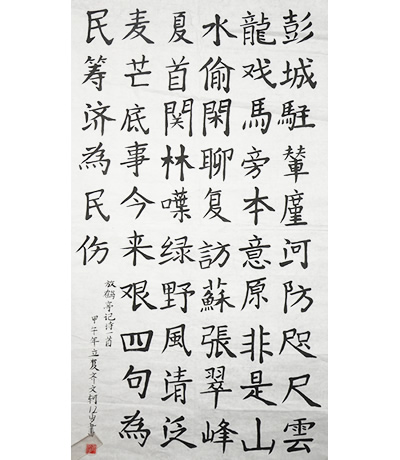 彭城駐輦廑河防咫尺雲
龍戏馬旁本意原非是山
水偷閑聊复訪蘇張翠峰
夏首関林嘩绿野風清泛
麦芒底事今来艰四句為
民筹济為民伤
放鶴亭记诗一首
甲午年立夏齐文